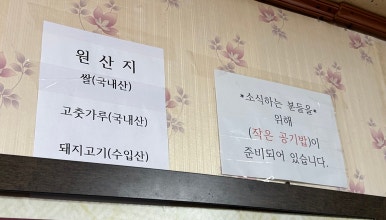 원 산 지
쌀(국내산)
고춧가루(국내산)
돼지고기(수입산)
*소식하는 분들을*
위해
(작은 공기밥)이
준비되어 있습니다.